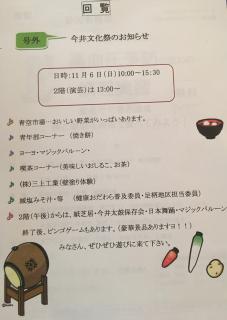 回覧
号外
今井文化祭のお知らせ
日時:11月6日(日)10:00～15:30
2階(演芸)は13:00～
青空市場…おいしい野菜がいっぱいあります。
青年部コーナー (焼き餅)
ヨーヨ・マジックバルーン・
喫茶コーナー(美味しいおしるこ、お茶)
(株)三上工業(壁塗り体験)
減塩みそ汁・等 (健康おだわら普及委員・足柄地区担当委員)
2階(午後)からは、紙芝居・今井太鼓保存会・日本舞踊・マジックバルーン
終了後、ビンゴゲームもあります。(豪華景品ありますヨ!!)
みなさん、ぜひぜひ遊びに来て下さい。